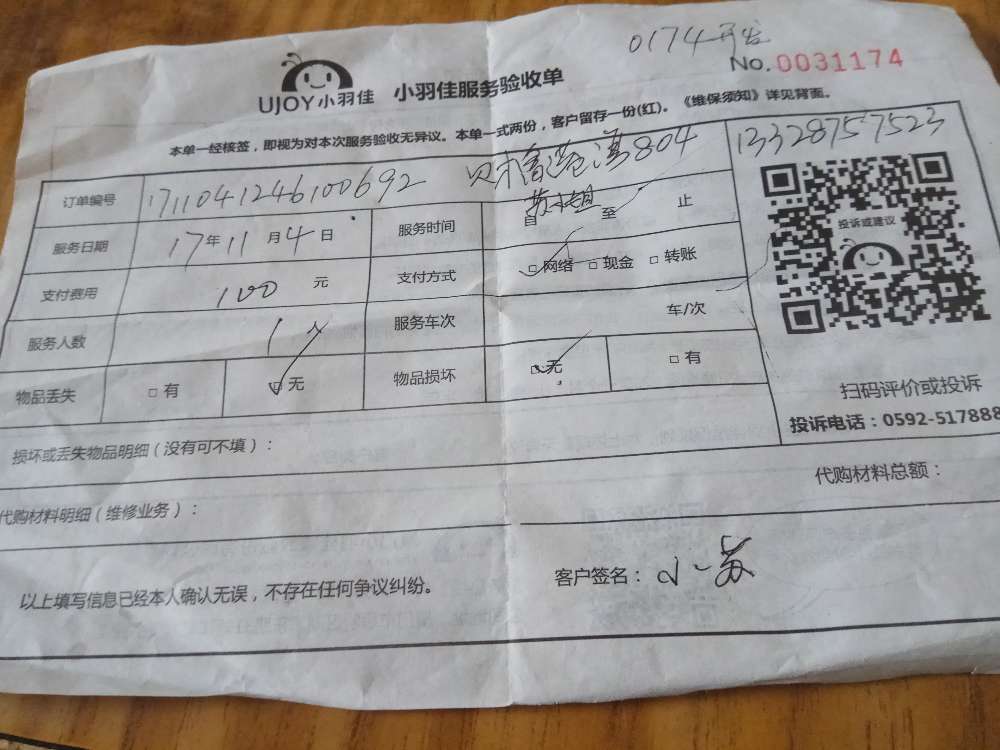 0174
No.0031174
UJOY小羽佳 小羽佳服务验收单
本单一经核签，即视为对本次服务验收无异议。本单一式两份，客户留存一份(红)。《维保须知》详见背面。
13328757523
订单编号 1711041246100692 804
苏小姐
服务日期 17年11月4日 服务时间 自 至 止
投诉或建议
支付费用 100 元 支付方式 □网络 □现金 □转账
服务人数 1人 服务车次 车/次
物品丢失 □有 □无 物品损坏 □无 □有
扫码评价或投诉
投诉电话：0592-517888
损坏或丢失物品明细（没有可不填）：
代购材料明细（维修业务）： 代购材料总额：
以上填写信息已经本人确认无误，不存在任何争议纠纷。 客户签名：小苏